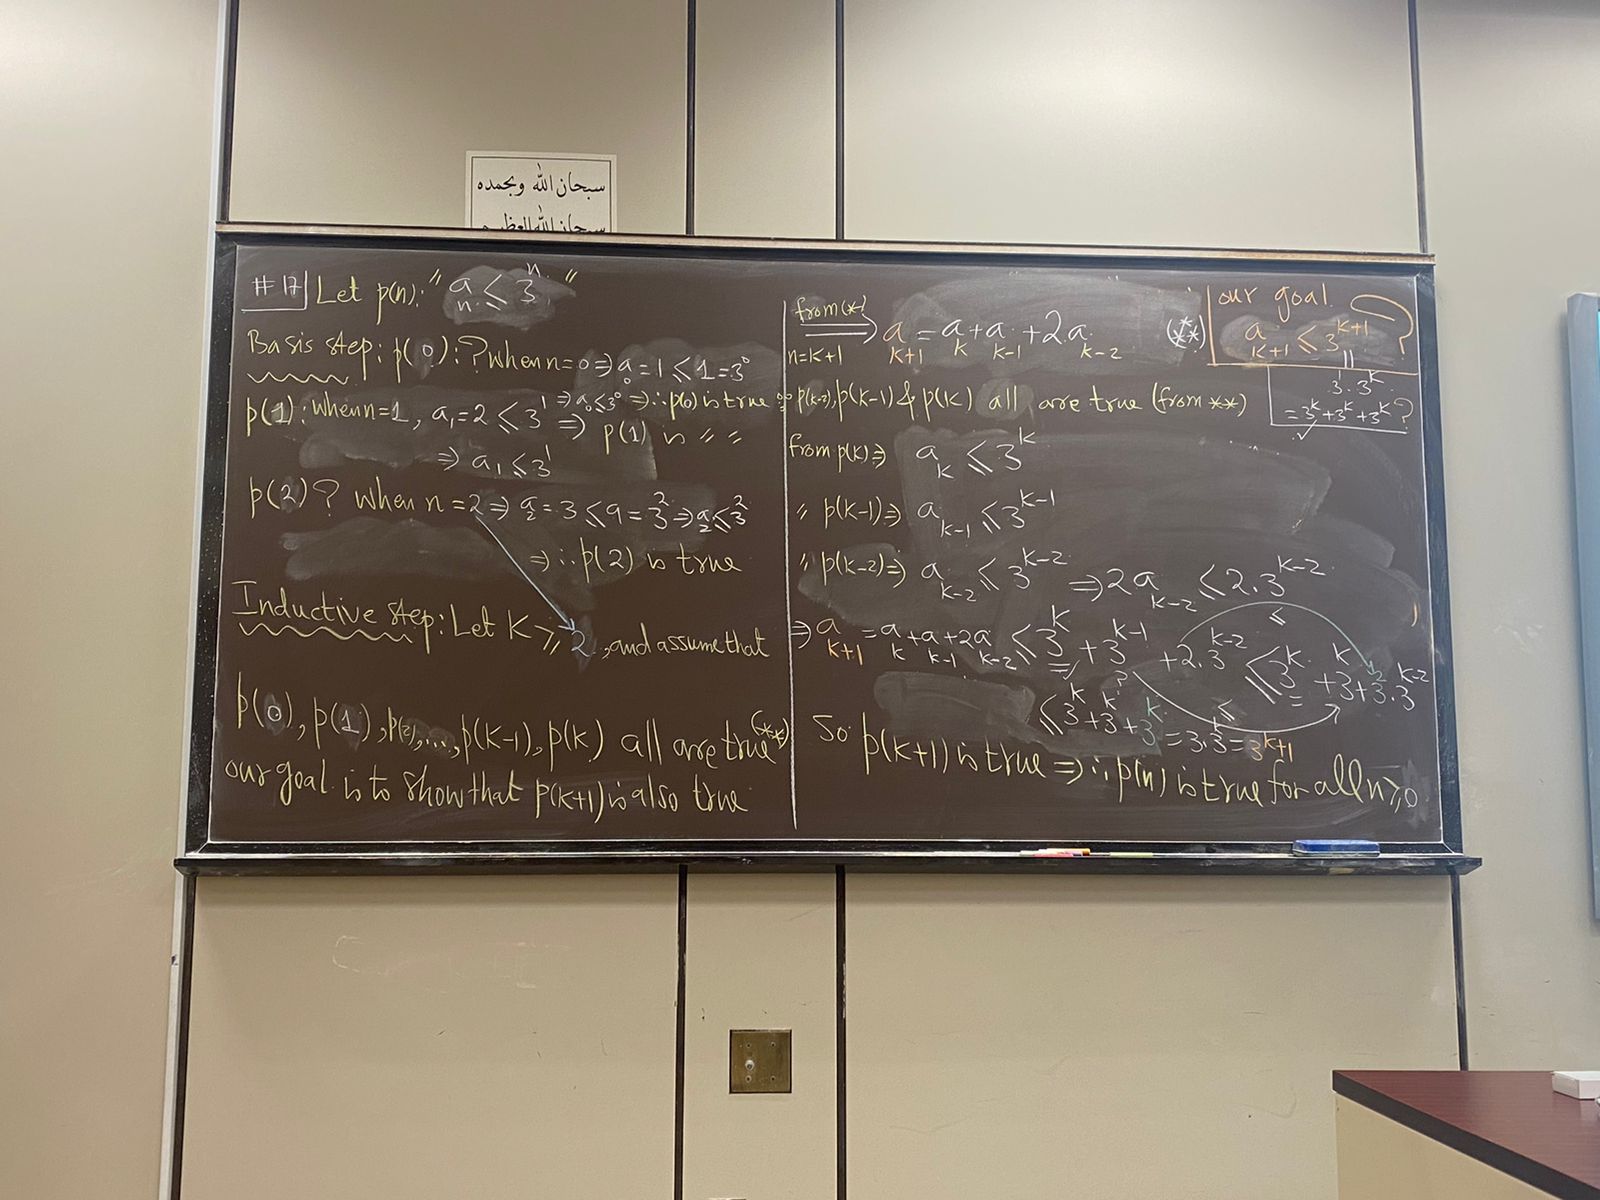 سبحان الله وبحمده
سبحان الله العظيم
#17 Let p(n): "aₙ ≤ 3ⁿ"
Basis step: p(0):? when n=0 ⇒ a₀ = 1 ≤ 1 = 3⁰
⇒ a₀ ≤ 3⁰ ⇒ ∴ p(0) is true
p(1): when n=1, a₁ = 2 ≤ 3¹ ⇒ p(1) is 〃 〃
⇒ a₁ ≤ 3¹
p(2)? when n=2 ⇒ a₂ = 3 ≤ 9 = 3² ⇒ a₂ ≤ 3²
⇒ ∴ p(2) is true
Inductive step: Let K ≥ 2, and assume that
p(0), p(1), p(2), ..., p(k-1), p(k) all are true (**)
our goal is to show that p(k+1) is also true
from (*) ⇒ a_{k+1} = a_k + a_{k-1} + 2a_{k-2} (**)
n=k+1
our goal
a_{k+1} ≤ 3^{k+1} ?
=
3¹·3^k
= 3^k + 3^k + 3^k ?
✓
∵ p(k-2), p(k-1) & p(k) all are true (from **)
from p(k) ⇒ a_k ≤ 3^k
〃 p(k-1) ⇒ a_{k-1} ≤ 3^{k-1}
〃 p(k-2) ⇒ a_{k-2} ≤ 3^{k-2} ⇒ 2a_{k-2} ≤ 2·3^{k-2}
⇒ a_{k+1} = a_k + a_{k-1} + 2a_{k-2} ≤ 3^k + 3^{k-1} + 2·3^{k-2} ≤ 3^k + 3^k + 3²·3^{k-2}
≤ 3^k + 3^k + 3^k = 3·3^k = 3^{k+1}
So p(k+1) is true ⇒ ∴ p(n) is true for all n ≥ 0